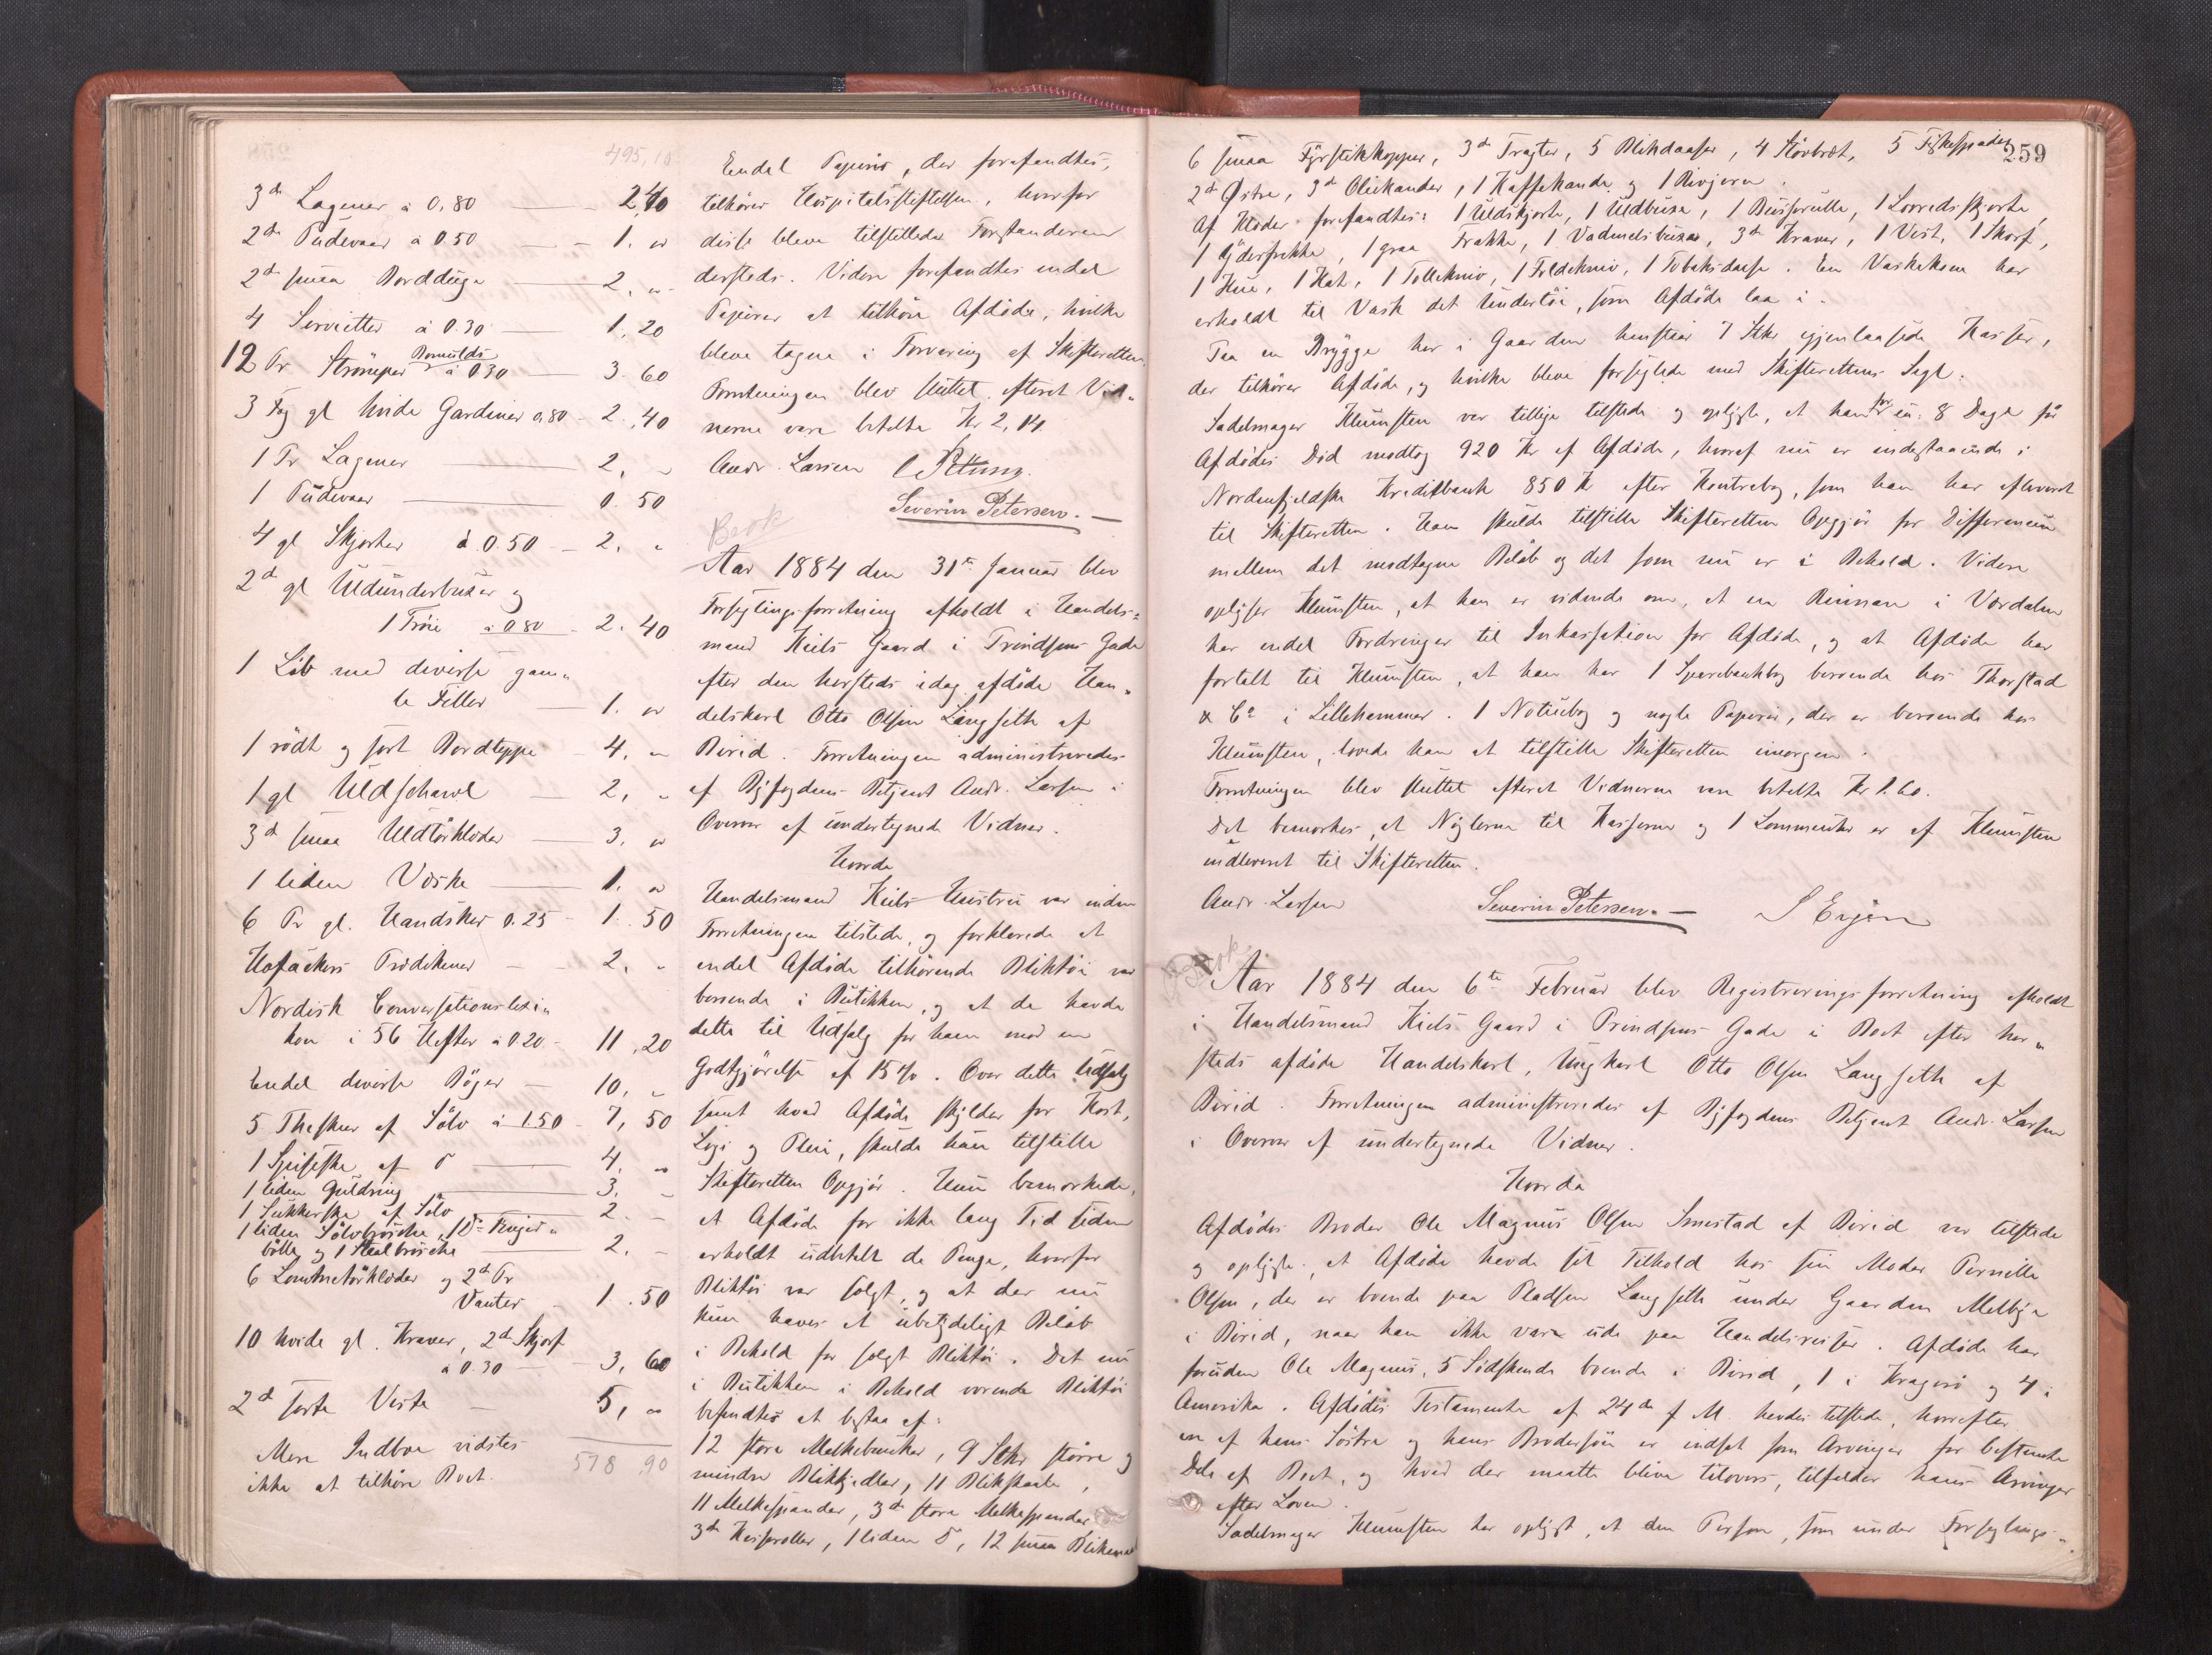 495,10
3de Lagener à 0,80 2,40
2de Pudevaar à 0.50 1. "
2de smaa Bordduge 2. "
4 Servietter à 0.30 1.20
12 Pr Strømper Bomulds à 0.30 3.60
3 Fag gl hvide Gardiner 0,80 2.40
1 Pr Lagener 2. "
1 Pudevaar 0.50
4 gl Skjorter à 0.50 2. "
2de gl Uldunderbuxer og
1 Trøie à 0.80 2.40
1 Løb med diverse gam-
le Filler 1. "
1 rødt og sort Bordteppe 4. "
1 gl Uldschawl 2. "
3de smaa Uldtørklæder 3. "
1 liden Væske 1. "
6 Pr gl. Handsker 0.25 1.50
Hofackers Prædikener 2. "
Nordisk Conversationslexi-
kon i 56 Hefter à 0.20 11,20
Endel diverse Bøger 10. "
5 Theskeer af Sølv à 1.50 7,50
1 Spiseske af D 4. "
1 liden Guldring 3. "
1 Sukkerske af Sølv 2. "
1 liden Sølvbrosche, 1 Do Finger-
bølle og 1 Staalbrosche 2. "
6 Lommetørklæder og 2de Pr
Vanter 1.50
10 hvide gl. Kraver, 2de Skjorf
à 0.30 3,60
2de sorte Veste 5, "
Mere Indboe vidstes
ikke at tilhøre Boet.
578,90
Endel Papirer, der forefandtes,
tilhører Hospitalsstiftelsen, hvorfor
disse bleve tilstillede Forstanderen
dersteds. Videre forefandtes endel
Papirer at tilhøre Afdøde, hvilke
bleve tagne i Forvaring af Skifteretten.
Forretningen blev sluttet efterat Vid-
nerne vare betalte Kr 2,14.
Andr. Larsen
Severin Petersen.
Aar 1884 den 31te Januar blev
Forseglingsforretning afholdt i Handels-
mand Kiels Gaard i Prindsens Gade
efter den hersteds idag afdøde Han-
delskarl Otto Olsen Langseth af
Birid. Forretningen administreredes
af Byfogdens Betjent Andr. Larsen i
Overvær af undertegnede Vidner.
Hvorda
Handelsmand Kiels Hustru var under
Forretningen tilstede, og forklarede at
endel Afdøde tilhørende Bliktøi var
beroende i Butikken, og at de havde
dette til Udsalg for ham mod en
Godtgjørelse af 15 %. Over dette Udsalg
samt hvad Afdøde skylder for Kost,
Logi og Pleie, skulde hun tilstille
Skifteretten Opgjør. Hun bemærkede,
at Afdøde for ikke lang Tid siden
erholdt udbetalt de Penge, hvorfor
Bliktøi var solgt, og at der nu
kun haves et ubetydeligt Beløb
i Behold for solgt Bliktøi. Det nu
i Butikken i Behold værende Bliktøi
befandtes at bestaa af:
12 store Melkebunker, 9 Stkr større og
mindre Blikkjedler, 11 Blikskaale,
11 Melkespander, 3de store Melkespander
3de Kasseroller, 1 liden D, 12 smaa
259
6 smaa Fyrstikkopper, 3de Tragter, 5 Blikdaaser, 4 Støvbret, 5 Fiskespader
2de Østre, 3de Oliekander, 1 Kaffekande og 1 Rivjern.
Af Klæder forefandtes: 1 Uldskjorte, 1 Uldbuxe, 1 Busserulle, 1 Lærredsskjorte,
1 Yderfrakke, 1 graa Frakke, 1 Vadmelsbuxe, 3de Kraver, 1 Vest, 1 Skjorf,
1 Hue, 1 Hat, 1 Tollekniv, 1 Foldekniv, 1 Tobaksdaase. En Vaskekone har
erholdt til Vask det Undertøi, som Afdøde laa i.
Paa en Brygge her i Gaarden henstaar 7 Stkr igjenlaasede Kasser,
der tilhører Afdøde, og hvilke bleve forseglede med Skifterettens Segl.
Sadelmager Klumsten var tillige tilstede og oplyste, at han for en 8 Dage før
Afdødes Død modtog 920 Kr af Afdøde, hvoraf nu er indestaaende i
Nordenfjeldske Kreditbank 850 Kr efter Kontrabog, som han har afleveret
til Skifteretten. Han skulde tilstille Skifteretten Opgjør for Differencen
mellem det modtagne Beløb og det som nu er i Behold. Videre
oplyser Klumsten, at han er vidende om, at en Rinnan i Værdalen
har endel Fordringer til Inkassation for Afdøde, og at Afdøde har
fortalt til Klumsten, at han har 1 Sparebankbog beroende hos Thorstad
& Co i Lillehammer. 1 Notitsbog og nogle Papirer, der er beroende hos
Klumsten, lovede han at tilstille Skifteretten imorgen.
Forretningen blev sluttet efterat Vidnerne vare betalte Kr 1.60.
Det bemærkes, at Nøglerne til Kasserne og 1 Lommeuhr er af Klumsten
indleveret til Skifteretten.
Andr. Larsen Severin Petersen.
Aar 1884 den 6te Februar blev Registreringsforretning afholdt
i Handelsmand Kiels Gaard i Prindsens Gade i Boet efter her-
steds afdøde Handelskarl, Ungkarl Otto Olsen Langseth af
Birid. Forretningen administreredes af Byfogdens Betjent Andr. Larsen
i Overvær af undertegnede Vidner.
Hvorda
Afdødes Broder Ole Magnus Olsen Smestad af Birid var tilstede
og oplyste, at Afdøde havde sit Tilhold hos sin Moder Pernille
Olsen, der er boende paa Pladsen Langseth under Gaarden Melbye
i Birid, naar han ikke var ude paa Handelsreiser. Afdøde har
foruden Ole Magnus, 5 Sødskende boende i Birid, 1 i Kragerø og 4 i
Amerika. Afdødes Testamente af 24de f M. havdes tilstede, hvorefter
en af hans Søstre og hans Brodersøn er indsat som Arvinger for bestemte
Dele af Boet, og hvad der maatte blive tilovers, tilfalder hans Arvinger
efter Loven.
Sadelmager Klumsten har oplyst, at den Person, som under Forseglings-